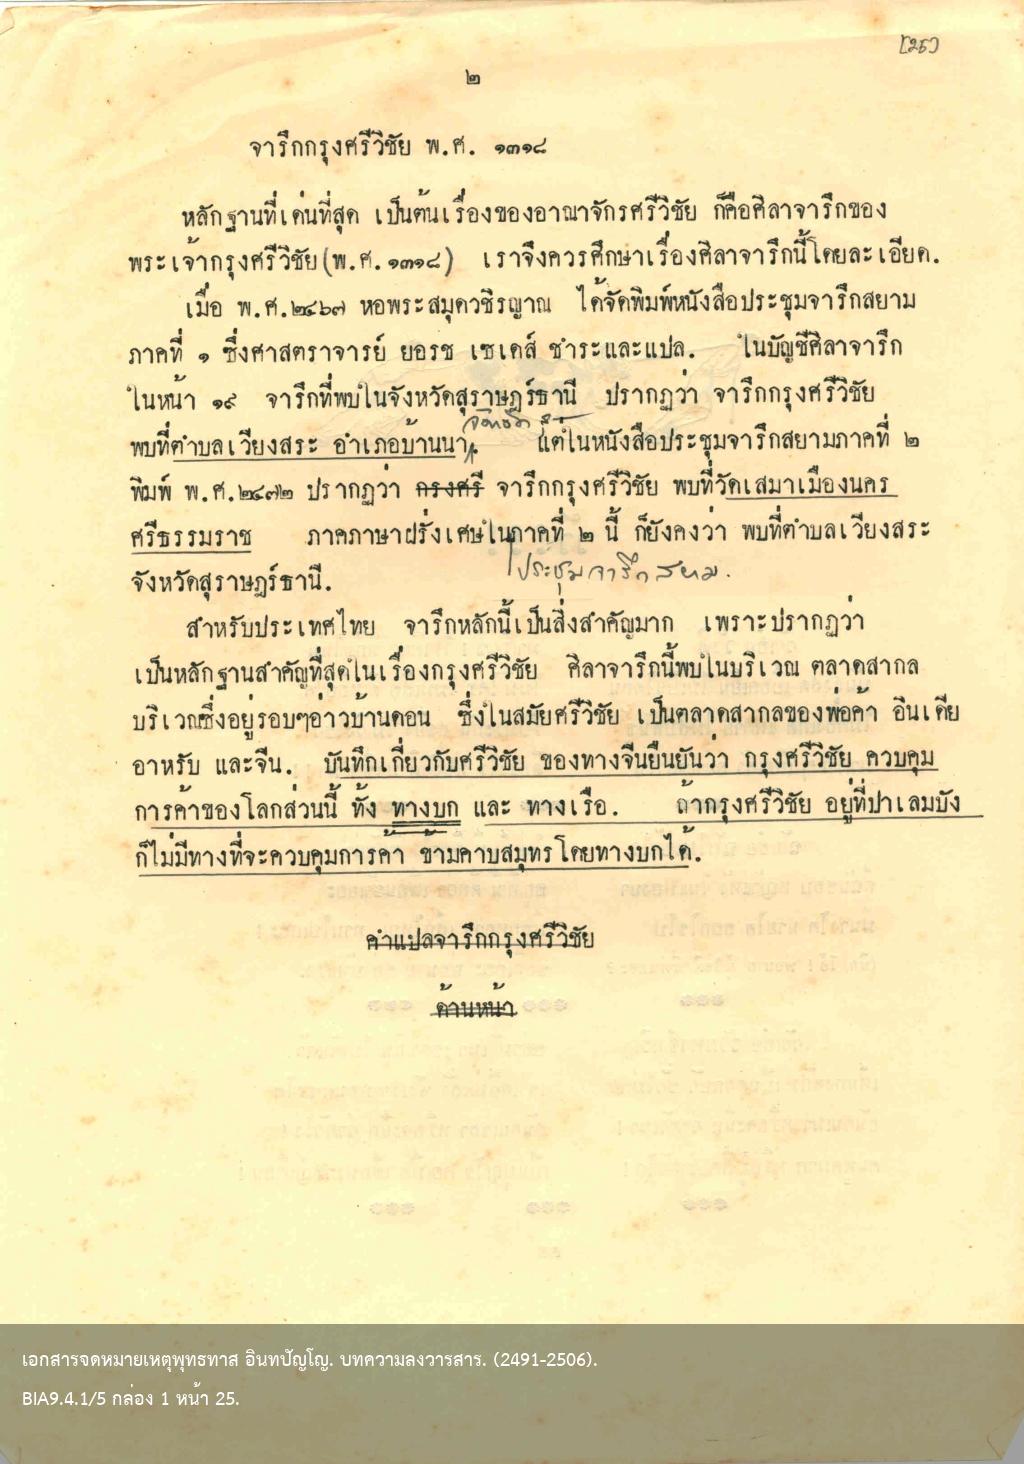 [๒๕]
๒
จารึกกรุงศรีวิชัย พ.ศ. ๑๓๑๘
หลักฐานที่เด่นที่สุด เป็นต้นเรื่องของอาณาจักรศรีวิชัย ก็คือศิลาจารึกของ
พระเจ้ากรุงศรีวิชัย(พ.ศ.๑๓๑๘) เราจึงควรศึกษาเรื่องศิลาจารึกนี้โดยละเอียด.
เมื่อ พ.ศ.๒๔๖๗ หอพระสมุดวชิรญาณ ได้จัดพิมพ์หนังสือประชุมจารึกสยาม
ภาคที่ ๑ ซึ่งศาสตราจารย์ ยอรช เซเดส์ ชำระและแปล. ในบัญชีศิลาจารึก
ในหน้า ๑๙ จารึกที่พบในจังหวัดสุราษฎร์ธานี ปรากฏว่า จารึกกรุงศรีวิชัย
พบที่ตำบลเวียงสระ อำเภอบ้านนา. แต่ในหนังสือประชุมจารึกสยามภาคที่ ๒
พิมพ์ พ.ศ.๒๔๗๒ ปรากฏว่า กรุงศรี จารึกกรุงศรีวิชัย พบที่วัดเสมาเมืองนคร
ศรีธรรมราช ภาคภาษาฝรั่งเศษในภาคที่ ๒ นี้ ก็ยังคงว่า พบที่ตำบลเวียงสระ
ประชุมจารึกสยาม.
จังหวัดสุราษฎร์ธานี.
สำหรับประเทศไทย จารึกหลักนี้เป็นสิ่งสำคัญมาก เพราะปรากฏว่า
เป็นหลักฐานสำคัญที่สุดในเรื่องกรุงศรีวิชัย ศิลาจารึกนี้พบในบริเวณ ตลาดสากล
บริเวณซึ่งอยู่รอบๆอ่าวบ้านดอน ซึ่งในสมัยศรีวิชัย เป็นตลาดสากลของพ่อค้า อินเดีย
อาหรับ และจีน. บันทึกเกี่ยวกับศรีวิชัย ของทางจีนยืนยันว่า กรุงศรีวิชัย ควบคุม
การค้าของโลกส่วนนี้ ทั้ง ทางบก และ ทางเรือ. ถ้ากรุงศรีวิชัย อยู่ที่ปาเลมบัง
ก็ไม่มีทางที่จะควบคุมการค้า ข้ามคาบสมุทรโดยทางบกได้.
คำแปลจารึกกรุงศรีวิชัย
ด้านหน้า
เอกสารจดหมายเหตุพุทธทาส อินทปัญโญ. บทความลงวารสาร. (2491-2506).
BIA9.4.1/5 กล่อง 1 หน้า 25.